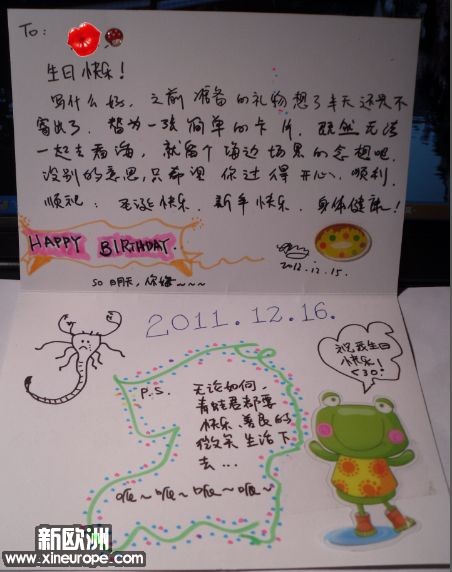 To:
生日快乐!
写什么好，之前准备的礼物想了半天还是不
寄出了，替为一张简单的卡片，既然无法
一起去看海，就留个海边场景的念想吧，
没别的意思，只希望你过得开心、顺利。
顺祝：圣诞快乐、新年快乐、身体健康!
HAPPY BIRTHDAY.
2012.12.15.
SO 明天，你好~~~
2011.12.16.
祝我生日
快乐!
P.S. 无论如何，
青蛙君都要
快乐、善良的
微笑生活下
去...
新欧洲
www.xineurope.com